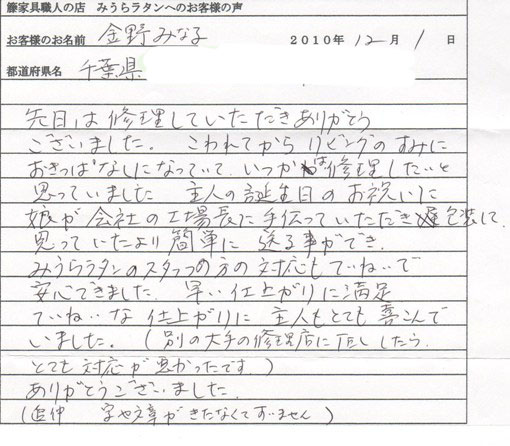 籐家具職人の店 みうらラタンへのお客様の声
お客様のお名前 金野みな子 2010年12月1日
都道府県名 千葉県
先日は修理していただきありがとう
ございました。こわれてから リビングのすみに
おきっぱなしになっていて、いつかは修理したいと
思っていました 主人の誕生日のお祝いに
娘が会社の工場長に手伝っていただき 包装して
思っていたより簡単に 送る事ができ、
みうらラタンのスタッフの方の対応もていねいで
安心できました。早い仕上がりに満足
ていねいな仕上がりに 主人もとても喜こんで
いました。(別の大手の修理店にTELしたら
とても対応が悪かったです。)
ありがとうございました。
(追伸 字や文章がきたなくてすいません)